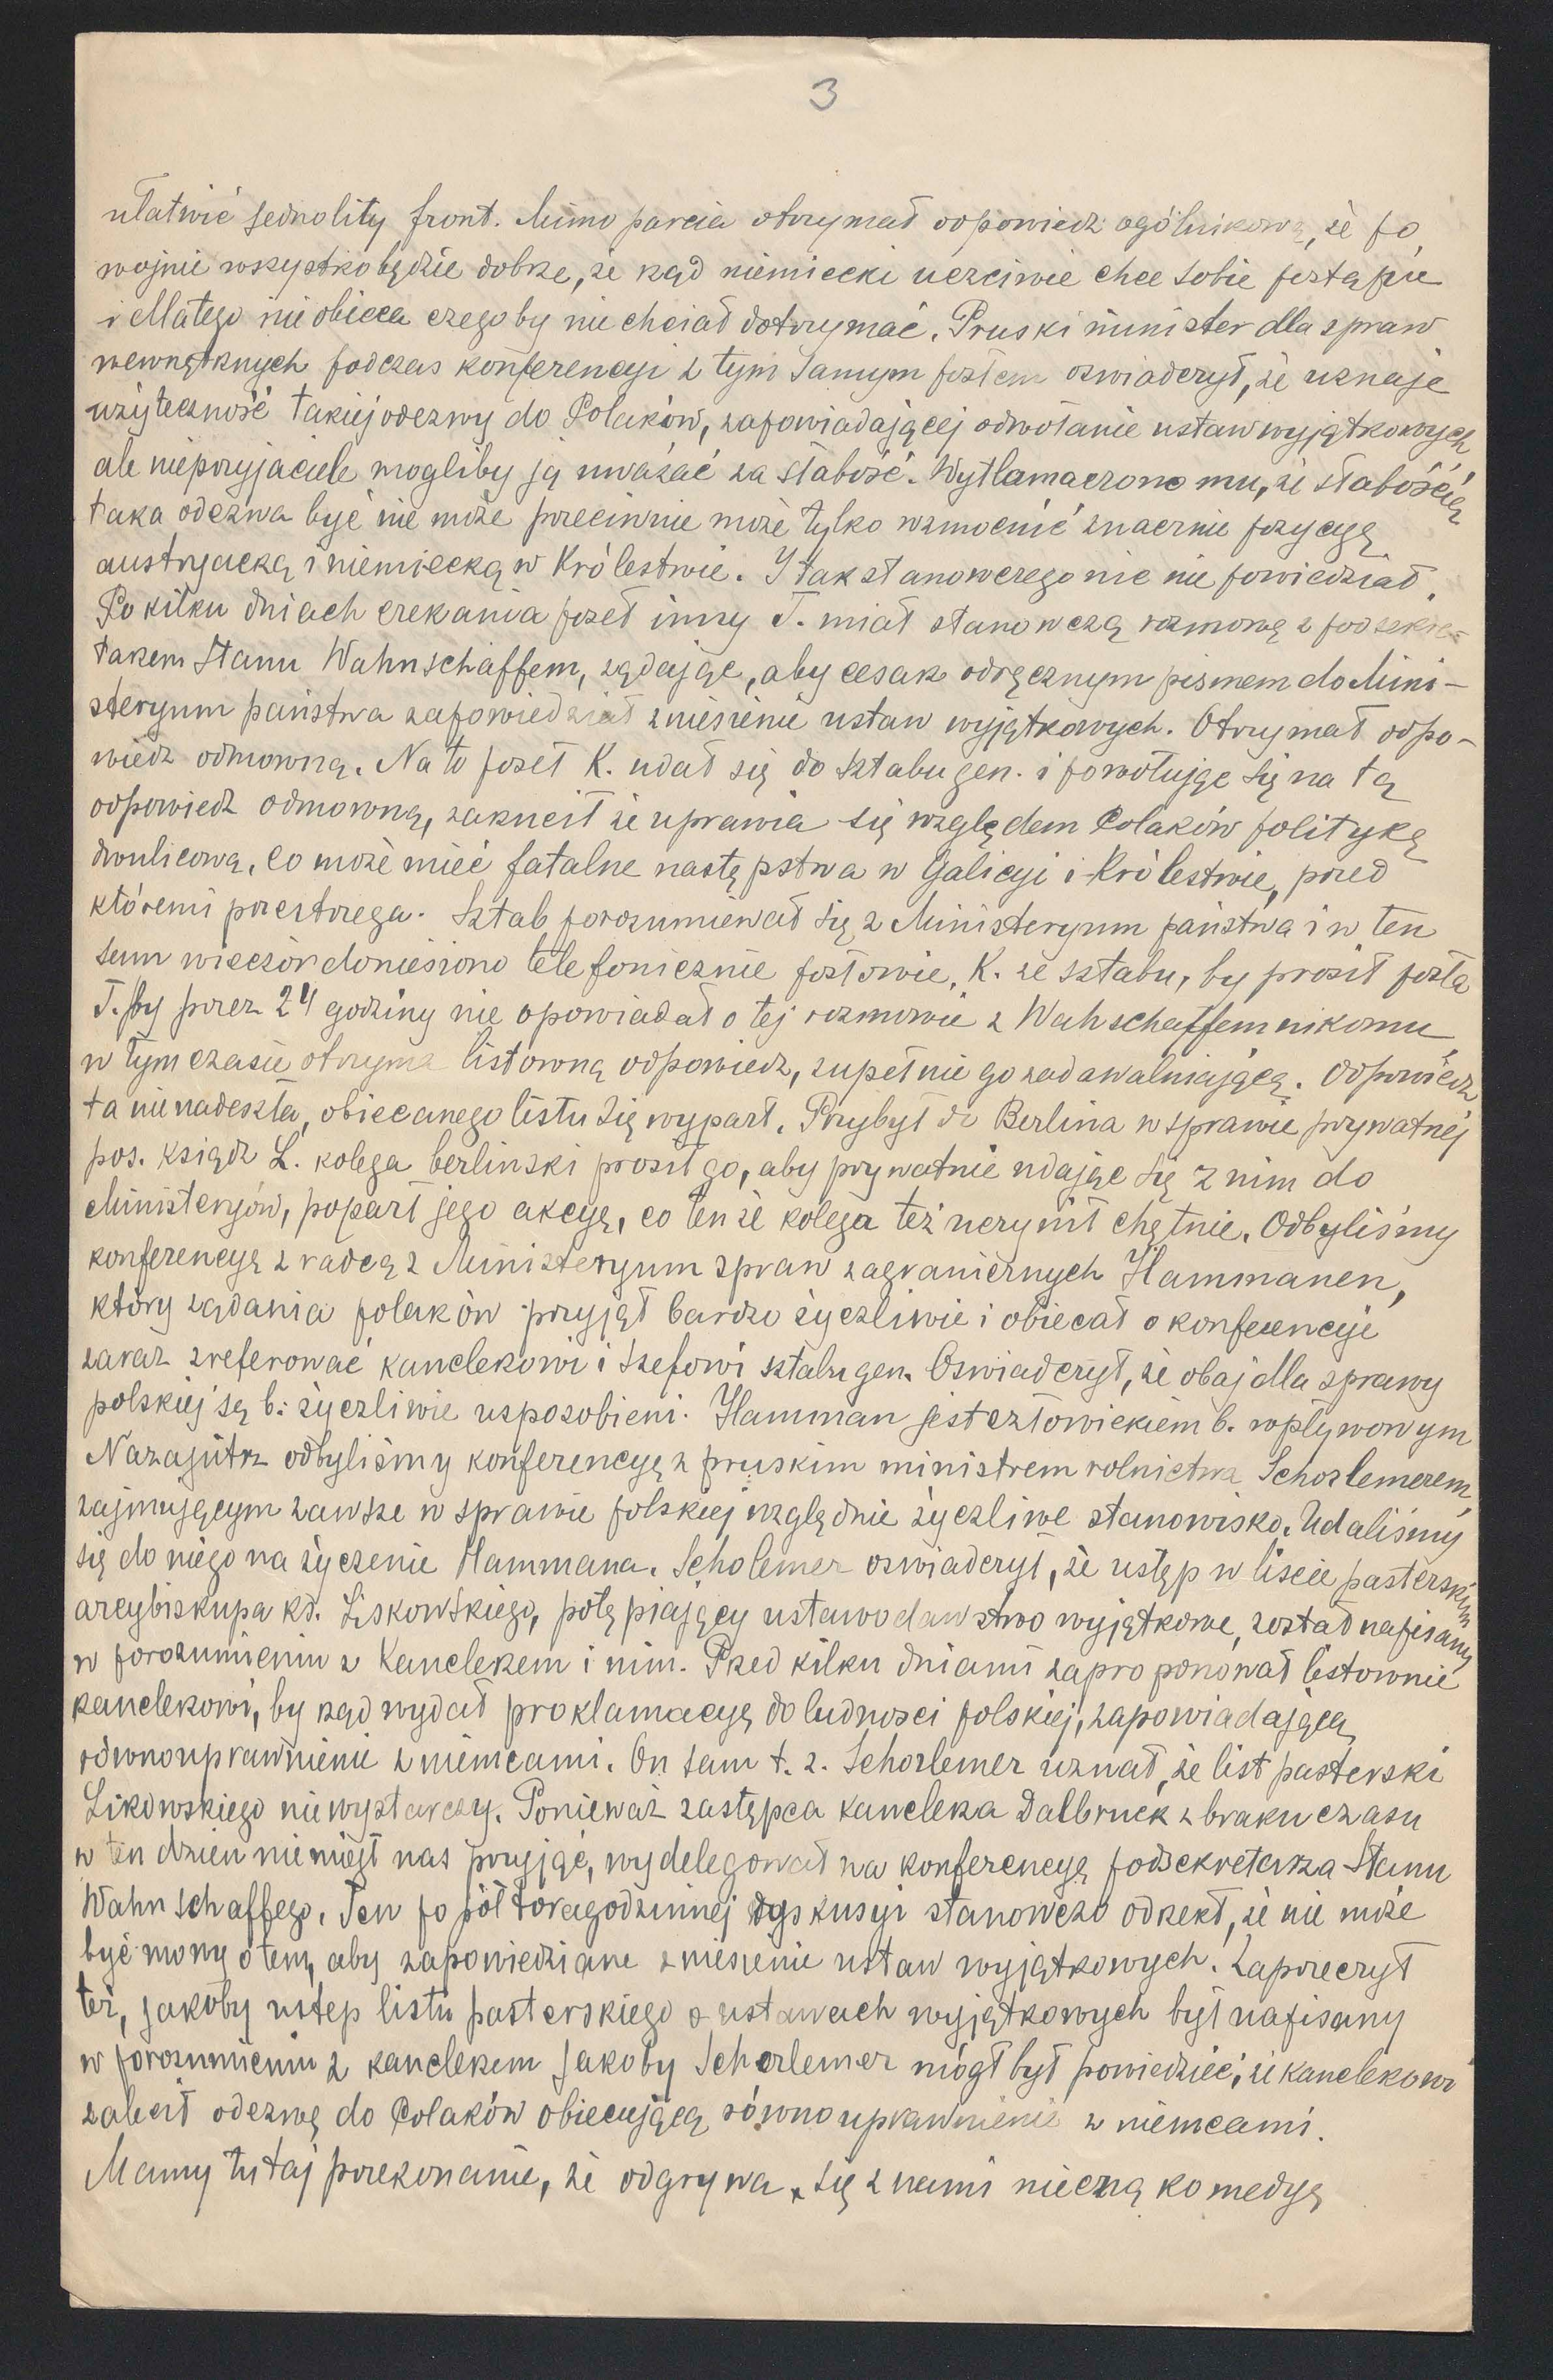 3
ułatwić jednolity front. Mimo parcia otrzymał odpowiedź ogólnikową, że po
wojnie wszystko będzie dobrze, że rząd niemiecki uczciwie chce sobie postąpić
i dlatego nie obieca czegoby nie chciał dotrzymać. Pruski minister dla spraw
wewnętrznych podczas konferencyi z tym samym posłem oswiadczył, że uznaje
użyteczność takiej odezwy do Polaków, zapowiadającej odwołanie ustaw wyjątkowych
ale nieprzyjaciele mogliby ją uważać za słabość. Wytłamaczono mu, że słabością
taka odezwa być nie może przeciwnie może tylko wzmocnić znacznie pozycyę
austryacką i niemiecką w Królestwie. I tak stanowczego nic nie powiedział.
Po kilku dniach czekania poseł inny T. miał stanowczą rozmowę z podsekre-
tarzem stanu Wahnschaffem, żądając, aby cesarz odręcznym pismem do Mini-
steryum państwa zapowiedział zniesienie ustaw wyjątkowych. Otrzymał odpo-
wiedz odmowną. Na to poseł K. udał się do sztabu gen. i powołując się na tą
odpowiedz odmowną, zarzucił że uprawia się względem Polaków politykę
dwulicową, co może mieć fatalne następstwa w Galicyi i Królestwie, przed
któremi przestrzega. Sztab porozumiewał się z Ministeryum państwa i w ten
sam wieczór doniesiono telefonicznie posłowie, K. ze sztabu, by prosił posła
T. by przez 24 godziny nie opowiadał o tej rozmowie z Wahschaffem nikomu
w tym czasie otrzyma listowną odpowiedz, zupełnie go zadawalniającą. Odpowiedz
ta nie nadeszła, obiecanego listu się wyparł. Przybył do Berlina w sprawie prywatnéj
pos. ksiądz L. kolega berlinski prosił go, aby prywatnie udając się z nim do
Ministeryów, poparł jego akcyę, co tenże kolega też uczynił chętnie. Odbyliśmy
konferencyę z radcą z Ministeryum spraw zagranicznych Hammanen,
który żądania polaków przyjął bardzo życzliwie i obiecał o konferencyi
zaraz zreferować kanclerzowi i szefowi sztabu gen. Oswiadczył, że obaj dla sprawy
polskiej są b: życzliwie usposobieni. Hamman jest człowiekiem b. wpływowym
Nazajutrz odbyliśmy konferencyę z pruskim ministrem rolnictwa Schorlemerem,
zajmującym zawsze w sprawie polskiej względnie życzliwe stanowisko. Udaliśmy
się do niego na życzenie Hammana. Scholemer oswiadczył, że ustęp w liscie pasterskim
arcybiskupa ks. Liskowskiego, potępiający ustawodawstwo wyjątkowe, został napisany
w porozumieniu z Kanclerzem i nim. Przed kilku dniami zaproponował listownie
kanclerzowi, by rząd wydał proklamacyę do ludnosci polskiej, zapowiadającą
równouprawnienie z niemcami. On sam t. z. Schorlemer uznał, że list pasterski
Likowskiego nie wystarczy. Ponieważ zastępca kanclerza Dalbruck z braku czasu
w ten dzien nie mógł nas przyjąć, wydelegował na konferencyę podsekretarza Stanu
Wahnschaffego. Ten po półtoragodzinnej dyskusyi stanowczo odrzekł, że nie może
być mowy o tem, aby zapowiedziane zniesienie ustaw wyjątkowych. Zaprzeczył
też, jakoby ustep listu pasterskiego o ustawach wyjątkowych był napisany
w porozumieniu z kanclerzem jakoby Schorlemer mógł był powiedzieć, że kanclerzowi
zalecił odezwę do Polaków obiecującą równouprawnienie z niemcami.
Mamy tutaj przekonanie, że odgrywa się z nami niecną komedyę